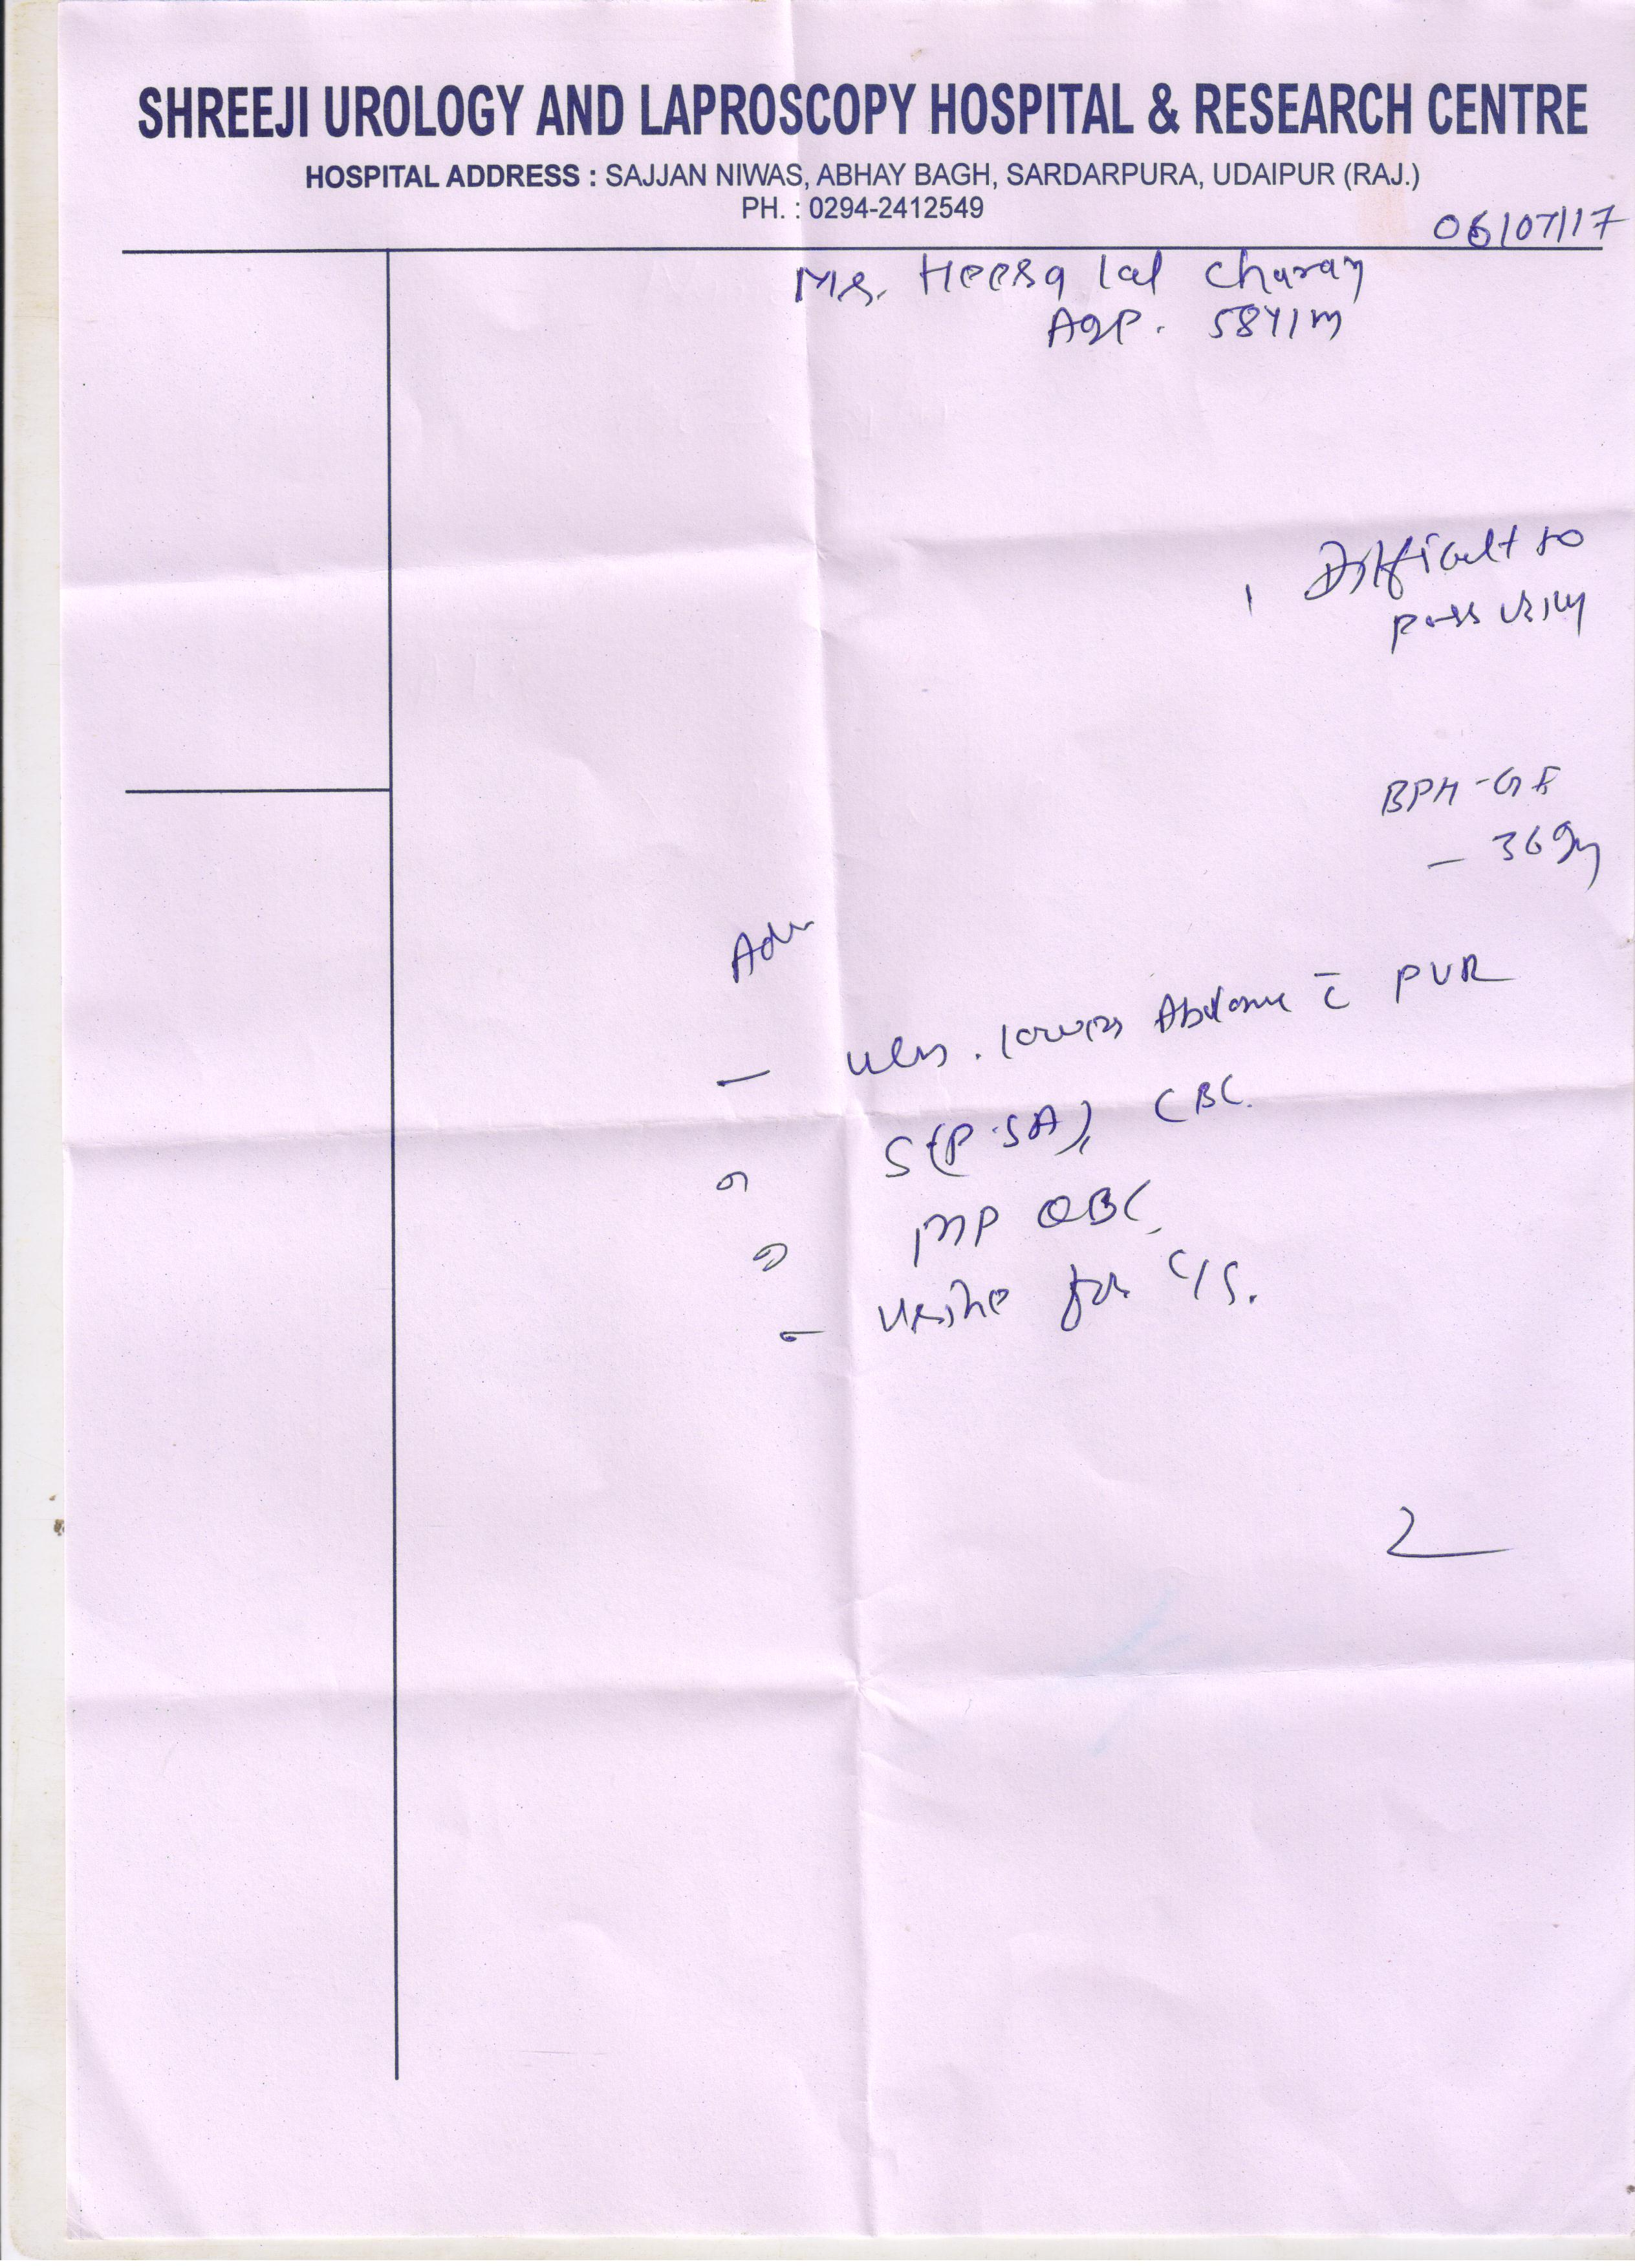 SHREEJI UROLOGY AND LAPROSCOPY HOSPITAL & RESEARCH CENTRE
HOSPITAL ADDRESS : SAJJAN NIWAS, ABHAY BAGH, SARDARPURA, UDAIPUR (RAJ.)
PH. : 0294-2412549
06/07/17
Mr. Heera lal Charan
Age. 58Y/m
Difficult to
pass
BPH -
- 36 gm
Adv
- lower PVR
S(P.SA), CBC.
MP QBC
- Urine for C/S.